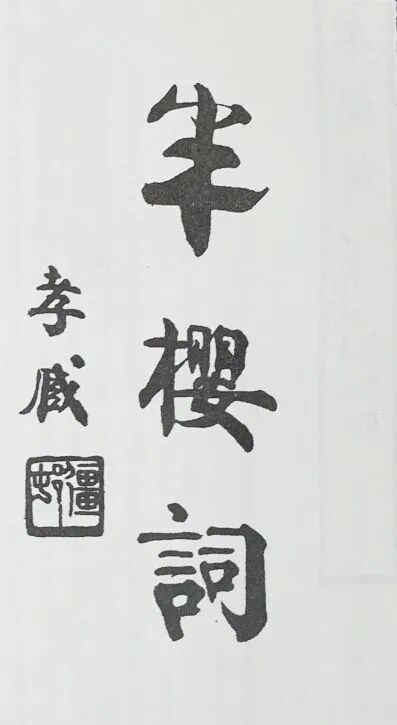 半櫻詞
孝臧
彊邨